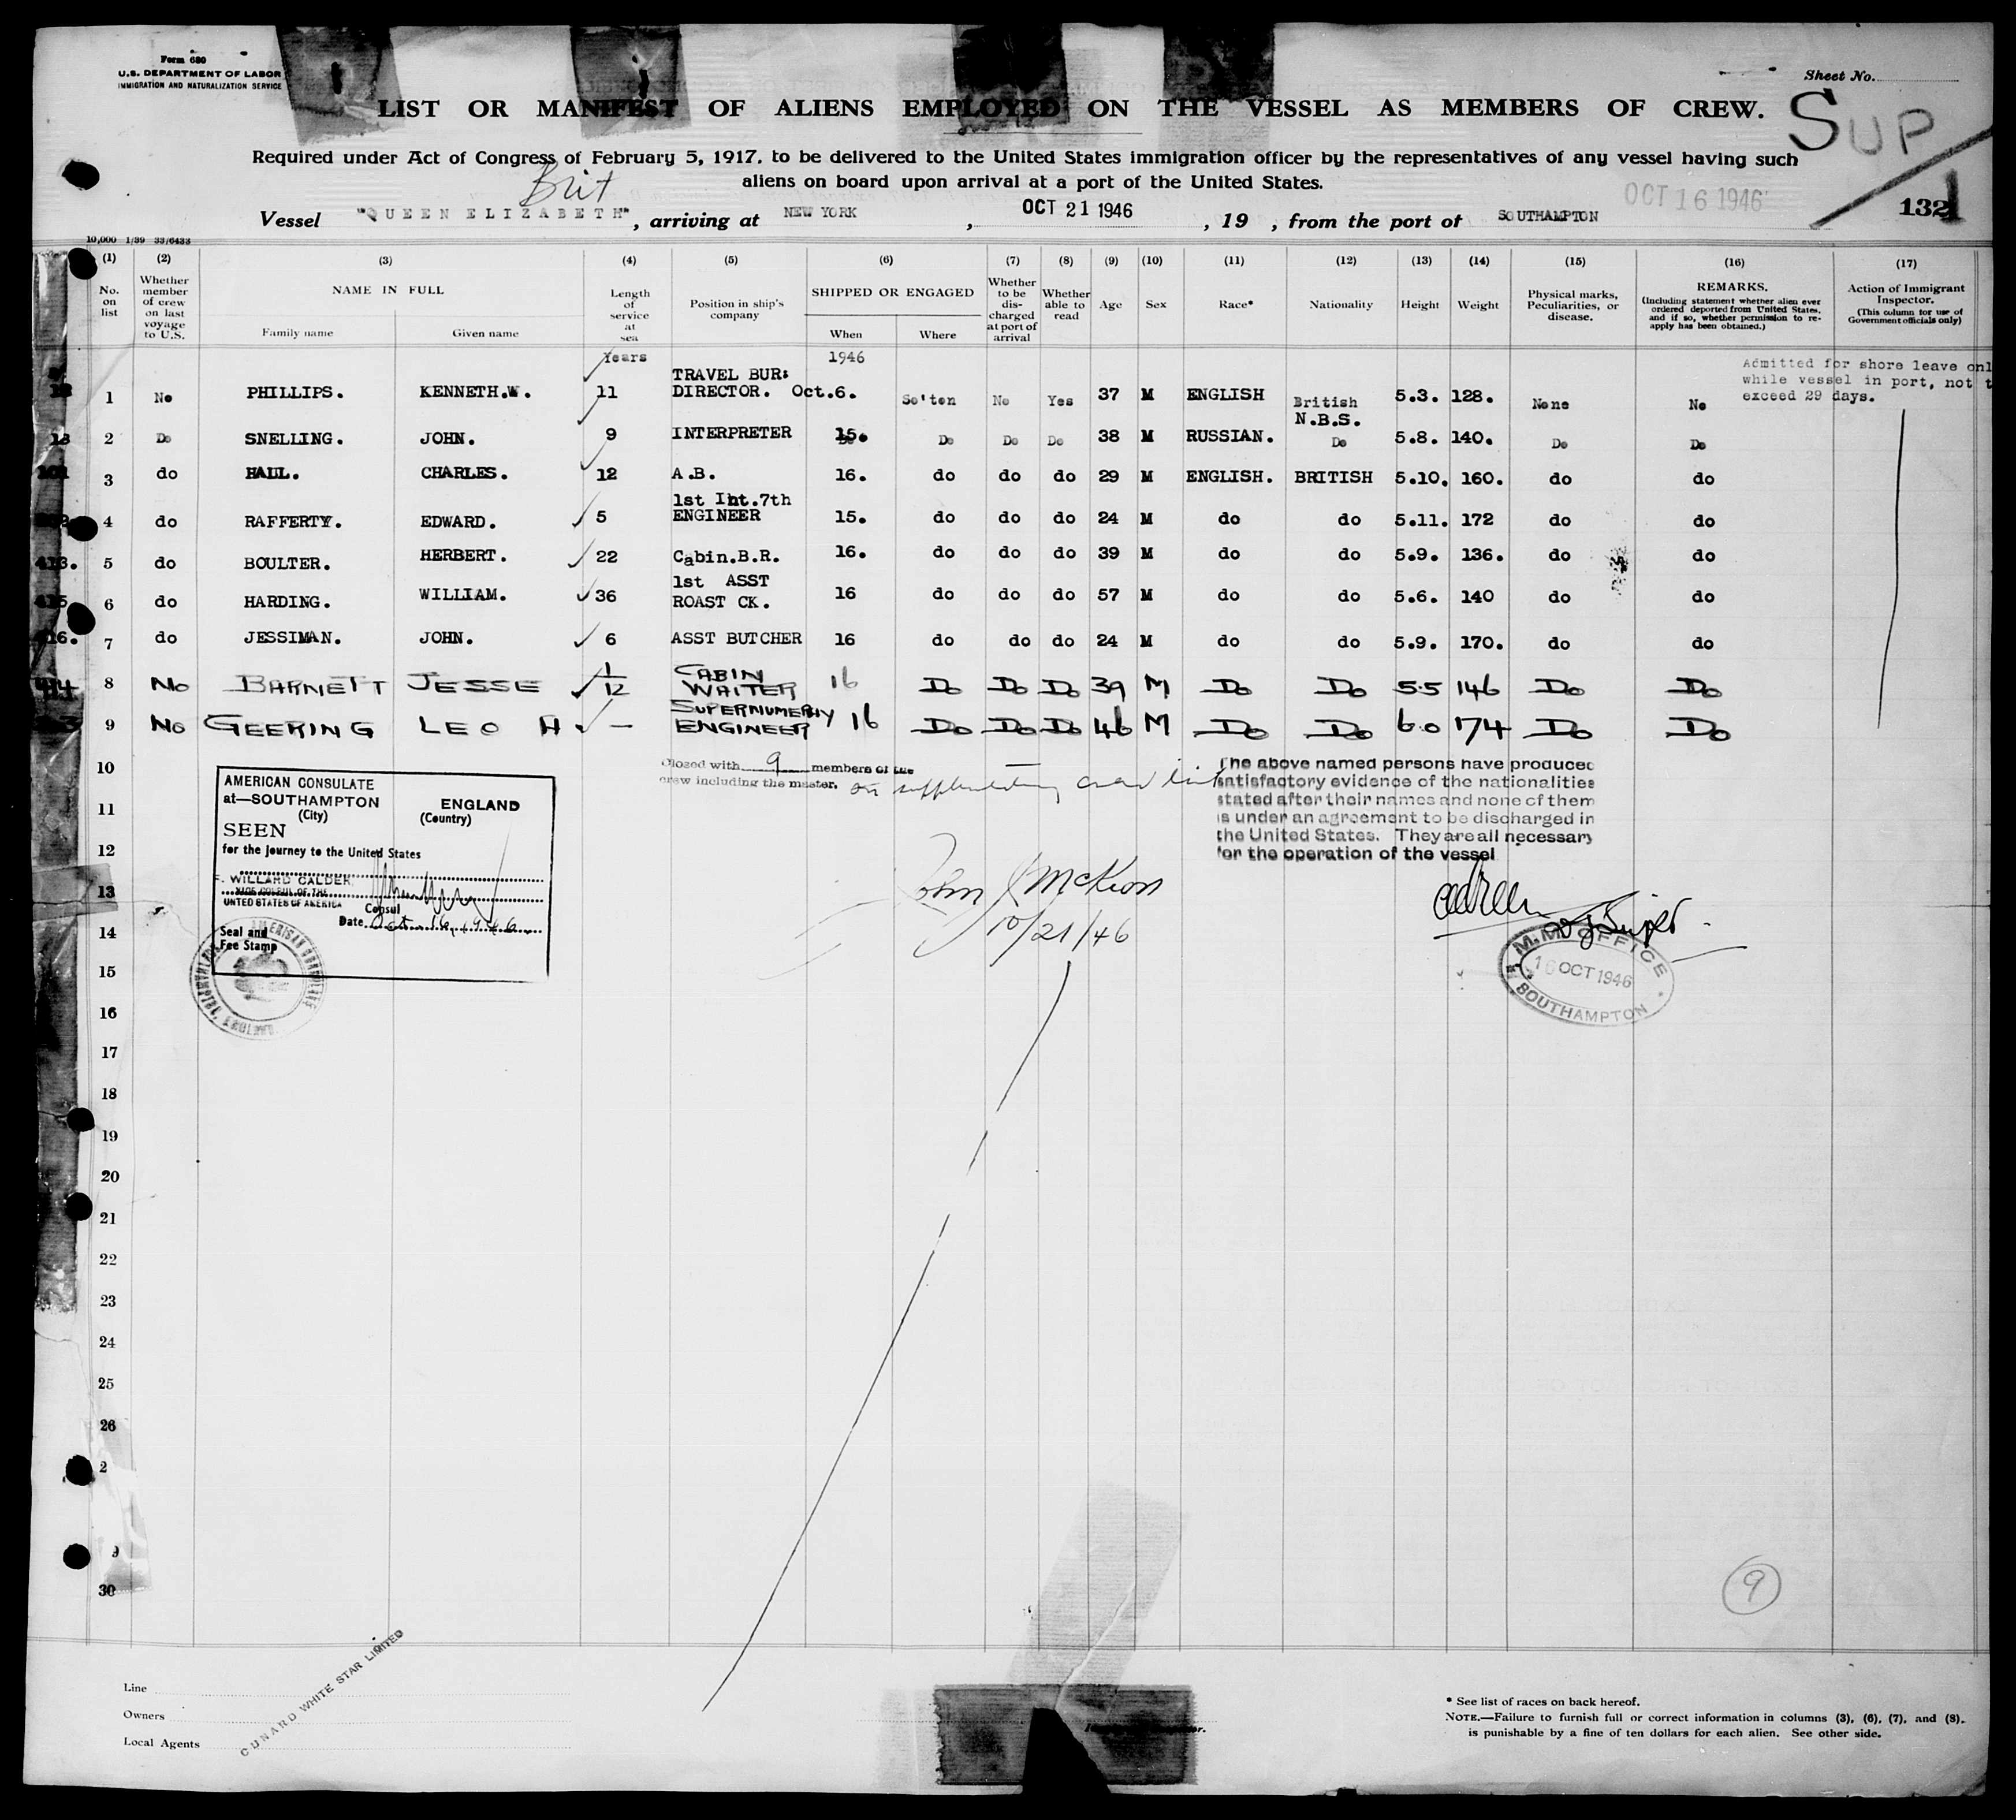 Form 680
U.S. DEPARTMENT OF LABOR
IMMIGRATION AND NATURALIZATION SERVICE
Sheet No.
LIST OR MANIFEST OF ALIENS EMPLOYED ON THE VESSEL AS MEMBERS OF CREW.
SUP
Required under Act of Congress of February 5, 1917, to be delivered to the United States immigration officer by the representatives of any vessel having such
aliens on board upon arrival at a port of the United States.
Brit
OCT 16 1946
132
Vessel "QUEEN ELIZABETH", arriving at NEW YORK, OCT 21 1946, 19 , from the port of SOUTHAMPTON
10,000 1/39 33/6433
(1) (2) (3) (4) (5) (6) (7) (8) (9) (10) (11) (12) (13) (14) (15) (16) (17)
No. on list
Whether member of crew on last voyage to U.S.
NAME IN FULL
Family name Given name
Length of service at sea
Position in ship's company
SHIPPED OR ENGAGED
When Where
Whether to be discharged at port of arrival
Whether able to read
Age Sex Race* Nationality Height Weight
Physical marks, Peculiarities, or disease.
REMARKS.
(Including statement whether alien ever ordered deported from United States, and if so, whether permission to re-apply has been obtained.)
Action of Immigrant Inspector.
(This column for use of Government officials only)
Years 1946
Admitted for shore leave onl
while vessel in port, not t
exceed 29 days.
1 No PHILLIPS. KENNETH.W. 11 TRAVEL BUR: DIRECTOR. Oct.6. So'ton No Yes 37 M ENGLISH British N.B.S. 5.3. 128. None No
2 Do SNELLING. JOHN. 9 INTERPRETER 15. Do Do Do 38 M RUSSIAN. Do 5.8. 140. Do Do
3 do HALL. CHARLES. 12 A.B. 16. do do do 29 M ENGLISH. BRITISH 5.10. 160. do do
4 do RAFFERTY. EDWARD. 5 1st Int.7th ENGINEER 15. do do do 24 M do do 5.11. 172 do do
413. 5 do BOULTER. HERBERT. 22 Cabin.B.R. 16. do do do 39 M do do 5.9. 136. do do
415 6 do HARDING. WILLIAM. 36 1st ASST ROAST CK. 16 do do do 57 M do do 5.6. 140 do do
416. 7 do JESSIMAN. JOHN. 6 ASST BUTCHER 16 do do do 24 M do do 5.9. 170. do do
8 No BARNETT JESSE 1/12 CABIN WAITER 16 Do Do Do 39 M Do Do 5.5 146 Do Do
9 No GEERING LEO H — SUPERNUMERY ENGINEER 16 Do Do Do 46 M Do Do 6.0 174 Do Do
10
Closed with 9 members of the
crew including the master. on supplementary crew list
The above named persons have produced
satisfactory evidence of the nationalities
stated after their names and none of them
is under an agreement to be discharged in
the United States. They are all necessary
for the operation of the vessel
AMERICAN CONSULATE
at—SOUTHAMPTON ENGLAND
(City) (Country)
SEEN
for the journey to the United States
WILLARD CALDER
VICE CONSUL OF THE
UNITED STATES OF AMERICA
Consul
Date Oct. 16, 1946
Seal and
Fee Stamp
John J McKeon
10/21/46
M.M. OFFICE
16 OCT 1946
SOUTHAMPTON
11
12
13
14
15
16
17
18
19
20
21
22
23
24
25
26
2
9
30
9
Line
Owners
Local Agents
CUNARD WHITE STAR LIMITED
* See list of races on back hereof.
NOTE.—Failure to furnish full or correct information in columns (3), (6), (7), and (8),
is punishable by a fine of ten dollars for each alien. See other side.